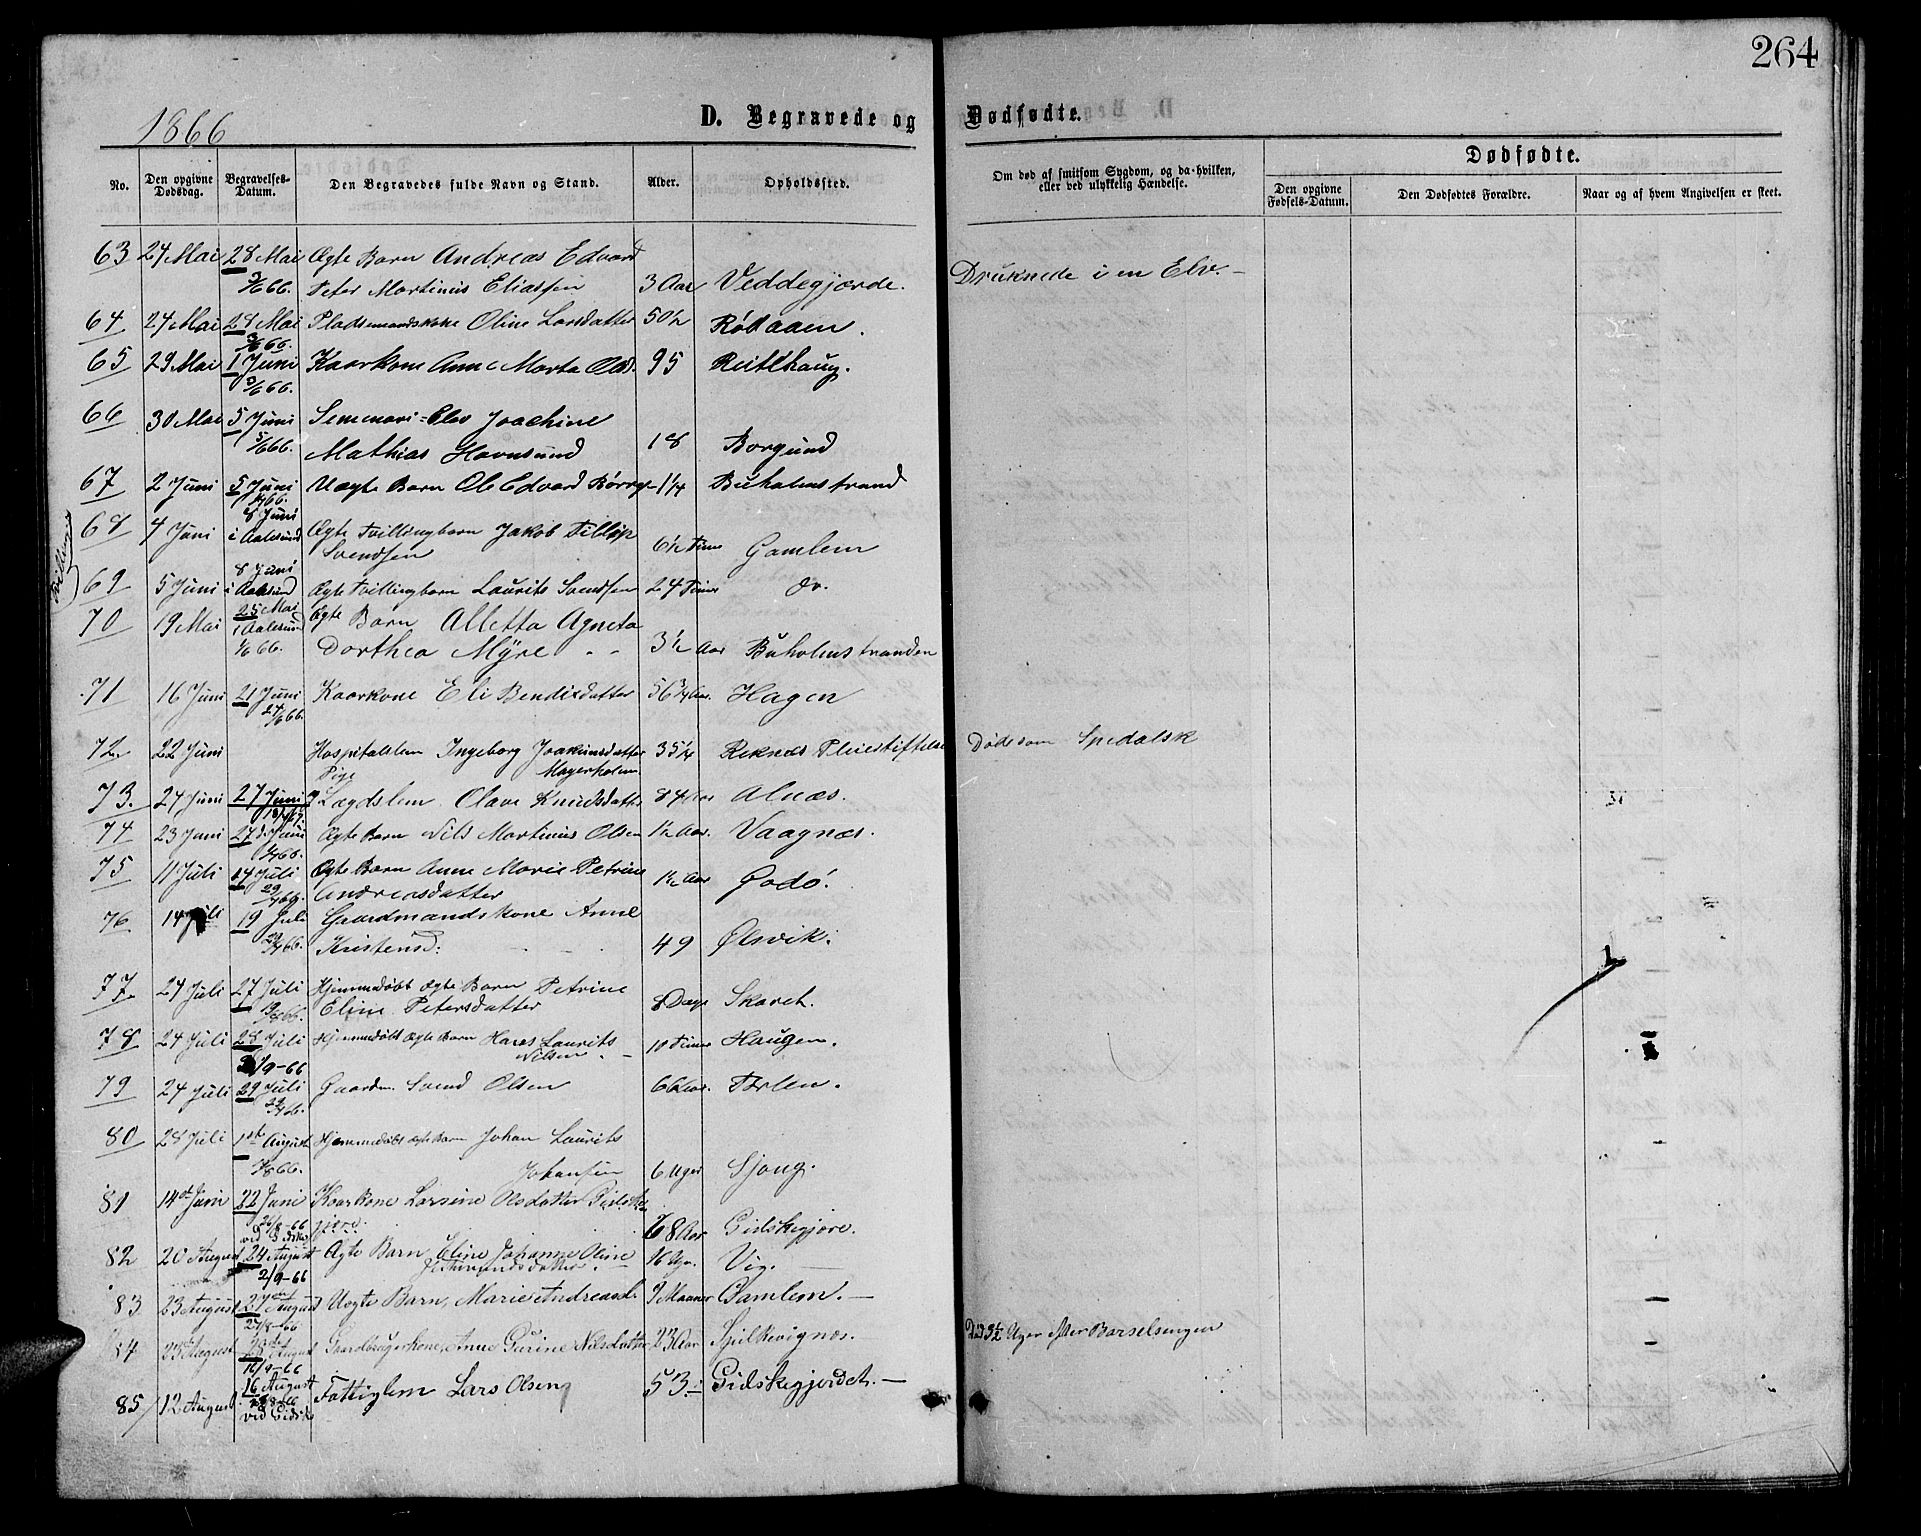 264
1866
D. Begravede og Dødfødte.
No.
Den opgivne Dødsdag.
Begravelses-Datum.
Den Begravedes fulde Navn og Stand.
Alder.
Opholdssted.
Om død af smitsom Sygdom, og da hvilken, eller ved ulykkelig Hændelse.
Dødfødte.
Den opgivne Fødsels-Datum.
Den Dødfødtes Forældre.
Naar og af hvem Angivelsen er skeet.
63 24 Mai 28 Mai Ægte Barn Andreas Edvard
Peter Martinus Eliassen 3 Aar Veddegjærde. Druknede i en Elv.
64 24 Mai 28 Mai Pladsmandskone Oline Larsdatter 50½ Rødaaen.
65 29 Mai 1 Juni Kaarkone Anne Marta Olsd. 95 Reitlhaug.
66 30 Mai 5 Juni Seminari-Elev Joachim
5/6 66. Mathias Havnsund 18 Borgund
67 2 Juni 5 Juni Uægte Barn Ole Edvard 1¼ Buholmstrand
8 Juni
68 4 Juni i Aalesund Ægte Tvillingbarn Jakob Fillip
Svendsen 6½ Timer Gamlem
8 Juni
69 5 Juni i Aalesund Ægte Tvillingbarn Laurits Svendsen 24 Timer do.
25 Mai
70 19 Mai i Aalesund Ægte Barn Alletta Agneta
Dorthea Myre 3½ Aar Buholmstranden
71 16 Juni 21 Juni Kaarkone Eli Bendixdatter 56¾ Aar. Hagen
27/6 66.
72. 22 Juni Hospitalslem Ingeborg Joakimsdatter 35¼ Reknæs Pleiestiftelse Døde som Spedalsk
Pige Mayerholm
73. 24 Juni 27 Juni Lægdslem Olave Knudsdatter 84 Aar Alnæs.
74 23 Juni 27 Juni Ægte Barn Nils Martinus Olsen 1½ Aar. Vaagnæs.
75 11 Juli 14 Juli Ægte Barn Anne Marie Petrine
Andreasdatter 1½ Aar Godø.
76 14 Juli 19 Juli Gaardmandskone Anne
Kristensd: 49 Ølsvik.
77. 24 Juli 27 Juli Hjemmedøbt Ægte Barn Petrine
Eline Petersdatter 8 Dage Skaret.
78 24 Juli 28 Juli Hjemmedøbt Ægte Barn Hans Laurits
Nilsen 10 Timer Haugen.
79 24 Juli 29 Juli Gaardm. Svend Olsen 66 Aar.
80 28 Juli 1st August Hjemmedøbt Ægte Barn Johan Laurits
Johansen 6 Uger Sjong.
81 14de Juni 22 Juni Kaarkone Larsine Olsdatter Gidske
26/8-66 gjære.
ved Gidske 68 Aar Gidskegjøre.
82 20 August 24 August Ægte Barn, Eline Johanne Oline
2/9-66 16 Ugr. Vig.
83 23 August 27 August Uægte Barn, Marie Andreasd. 9 Maaner Gamlem.
84 23de August 28de August Gaardbrugerkone, Anne Gurine Nilsdatter 23 Aar Spilkevignæs. Død 3½ Uger efter Barselsengen
16/9-66
16 August
85 12 August. Fattiglem Lars Olsen 53 Gidskegjerdet.
ved Gidske